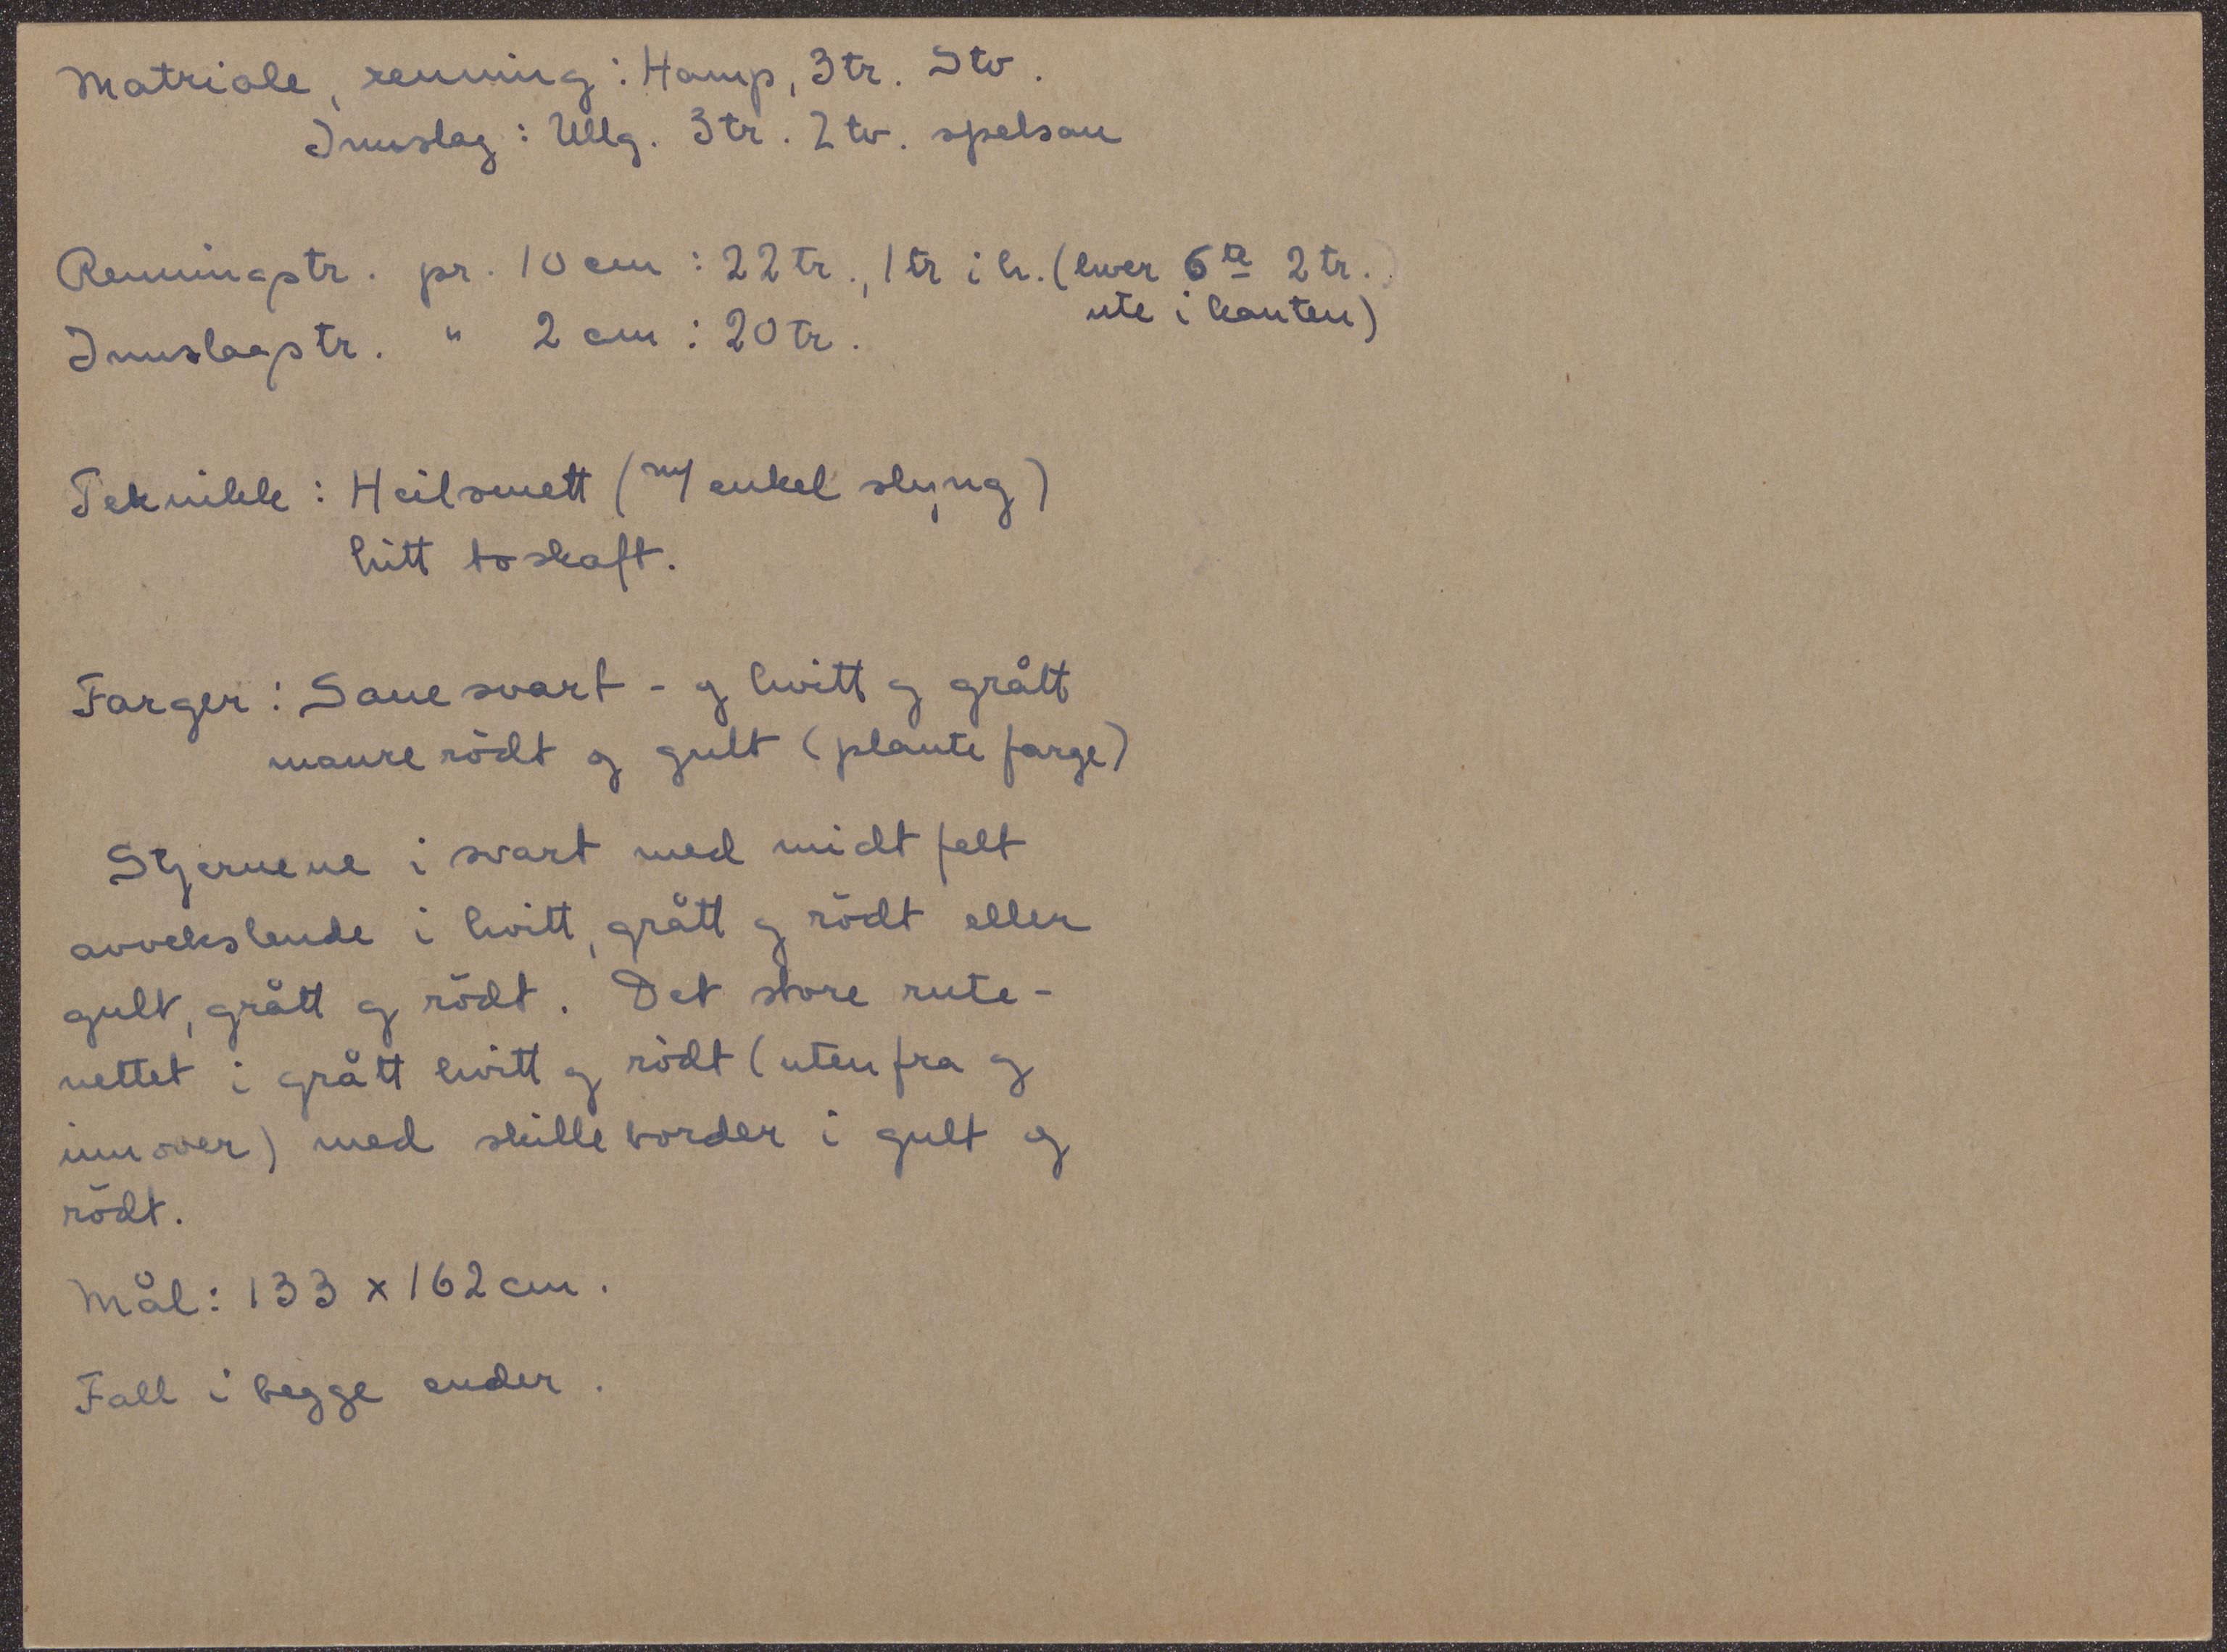 Matriale, renning: Hamp, 3tr. Stv.
Innslag: Ullg. 3tr. 2tv. spelsau
Renningstr. pr. 10 cm: 22 tr., 1tr i h. (hver 6te 2tr.
ute i kanten)
Innslagstr. " 2 cm: 20 tr.
Teknikk: Heilsmett (m/ enkel slyng)
litt toskaft.
Farger: Sauesvart - og hvitt og grått
maurerödt og gult (plantefarge)
Stjernene i svart med midtfelt
avvekslende i hvitt, grått og rödt eller
gult, grått og rödt. Det store rute-
nettet i grått hvitt og rödt (utenfra og
innover) med skilleborder i gult og
rödt.
Mål: 133 x 162 cm.
Fall i begge ender.